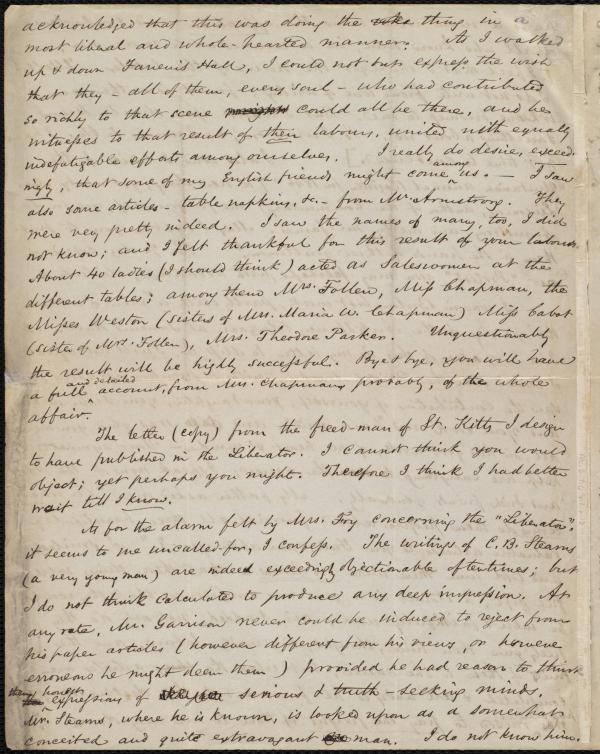 acknowledged that this was doing the thing in a
most liberal and whole-hearted manner. As I walked
up & down Faneuil Hall, I could not but express the wish
that they - all of them, every soul - who had contributed
so richly to that scene could all be there, and be
witnesses to that result of their labours, united with equally
indefatigable efforts among ourselves. I really do desire, exceed-
ingly, that some of my English friends might come among us. — I saw
also some articles - table napkins, &c. - from Mr. Armstrong. They
were very pretty indeed. I saw the names of many, too, I did
not know; and I felt thankful for this result of your labours.
About 40 ladies (I should think) acted as Saleswomen at the
different tables; among them Mrs. Follen, Miss Chapman, the
Misses Weston (sisters of Mrs. Maria W. Chapman) Miss Cabot
(sister of Mrs. Follen), Mrs. Theodore Parker. Unquestionably
the result will be highly successful. Bye & bye, you will have
a full and detailed account, from Mrs. Chapman, probably, of the whole
affair.
The letter (copy) from the freed-man of St. Kitts I design
to have published in the Liberator. I cannot think you would
object; yet perhaps you might. Therefore I think I had better
wait till I know.
As for the alarm felt by Mrs. Fry concerning the "Liberator",
it seems to me uncalled-for, I confess. The writings of C. B. Stearns
(a very young man) are indeed exceedingly objectionable oftentimes; but
I do not think calculated to produce any deep impression. At
any rate, Mr. Garrison never could be induced to reject from
his paper articles (however different from his views, or however
erroneous he might deem them) provided he had reason to think
them honest expressions of serious & truth-seeking minds.
Mr. Stearns, where he is known, is looked upon as a somewhat
conceited and quite extravagant man. I do not know him.